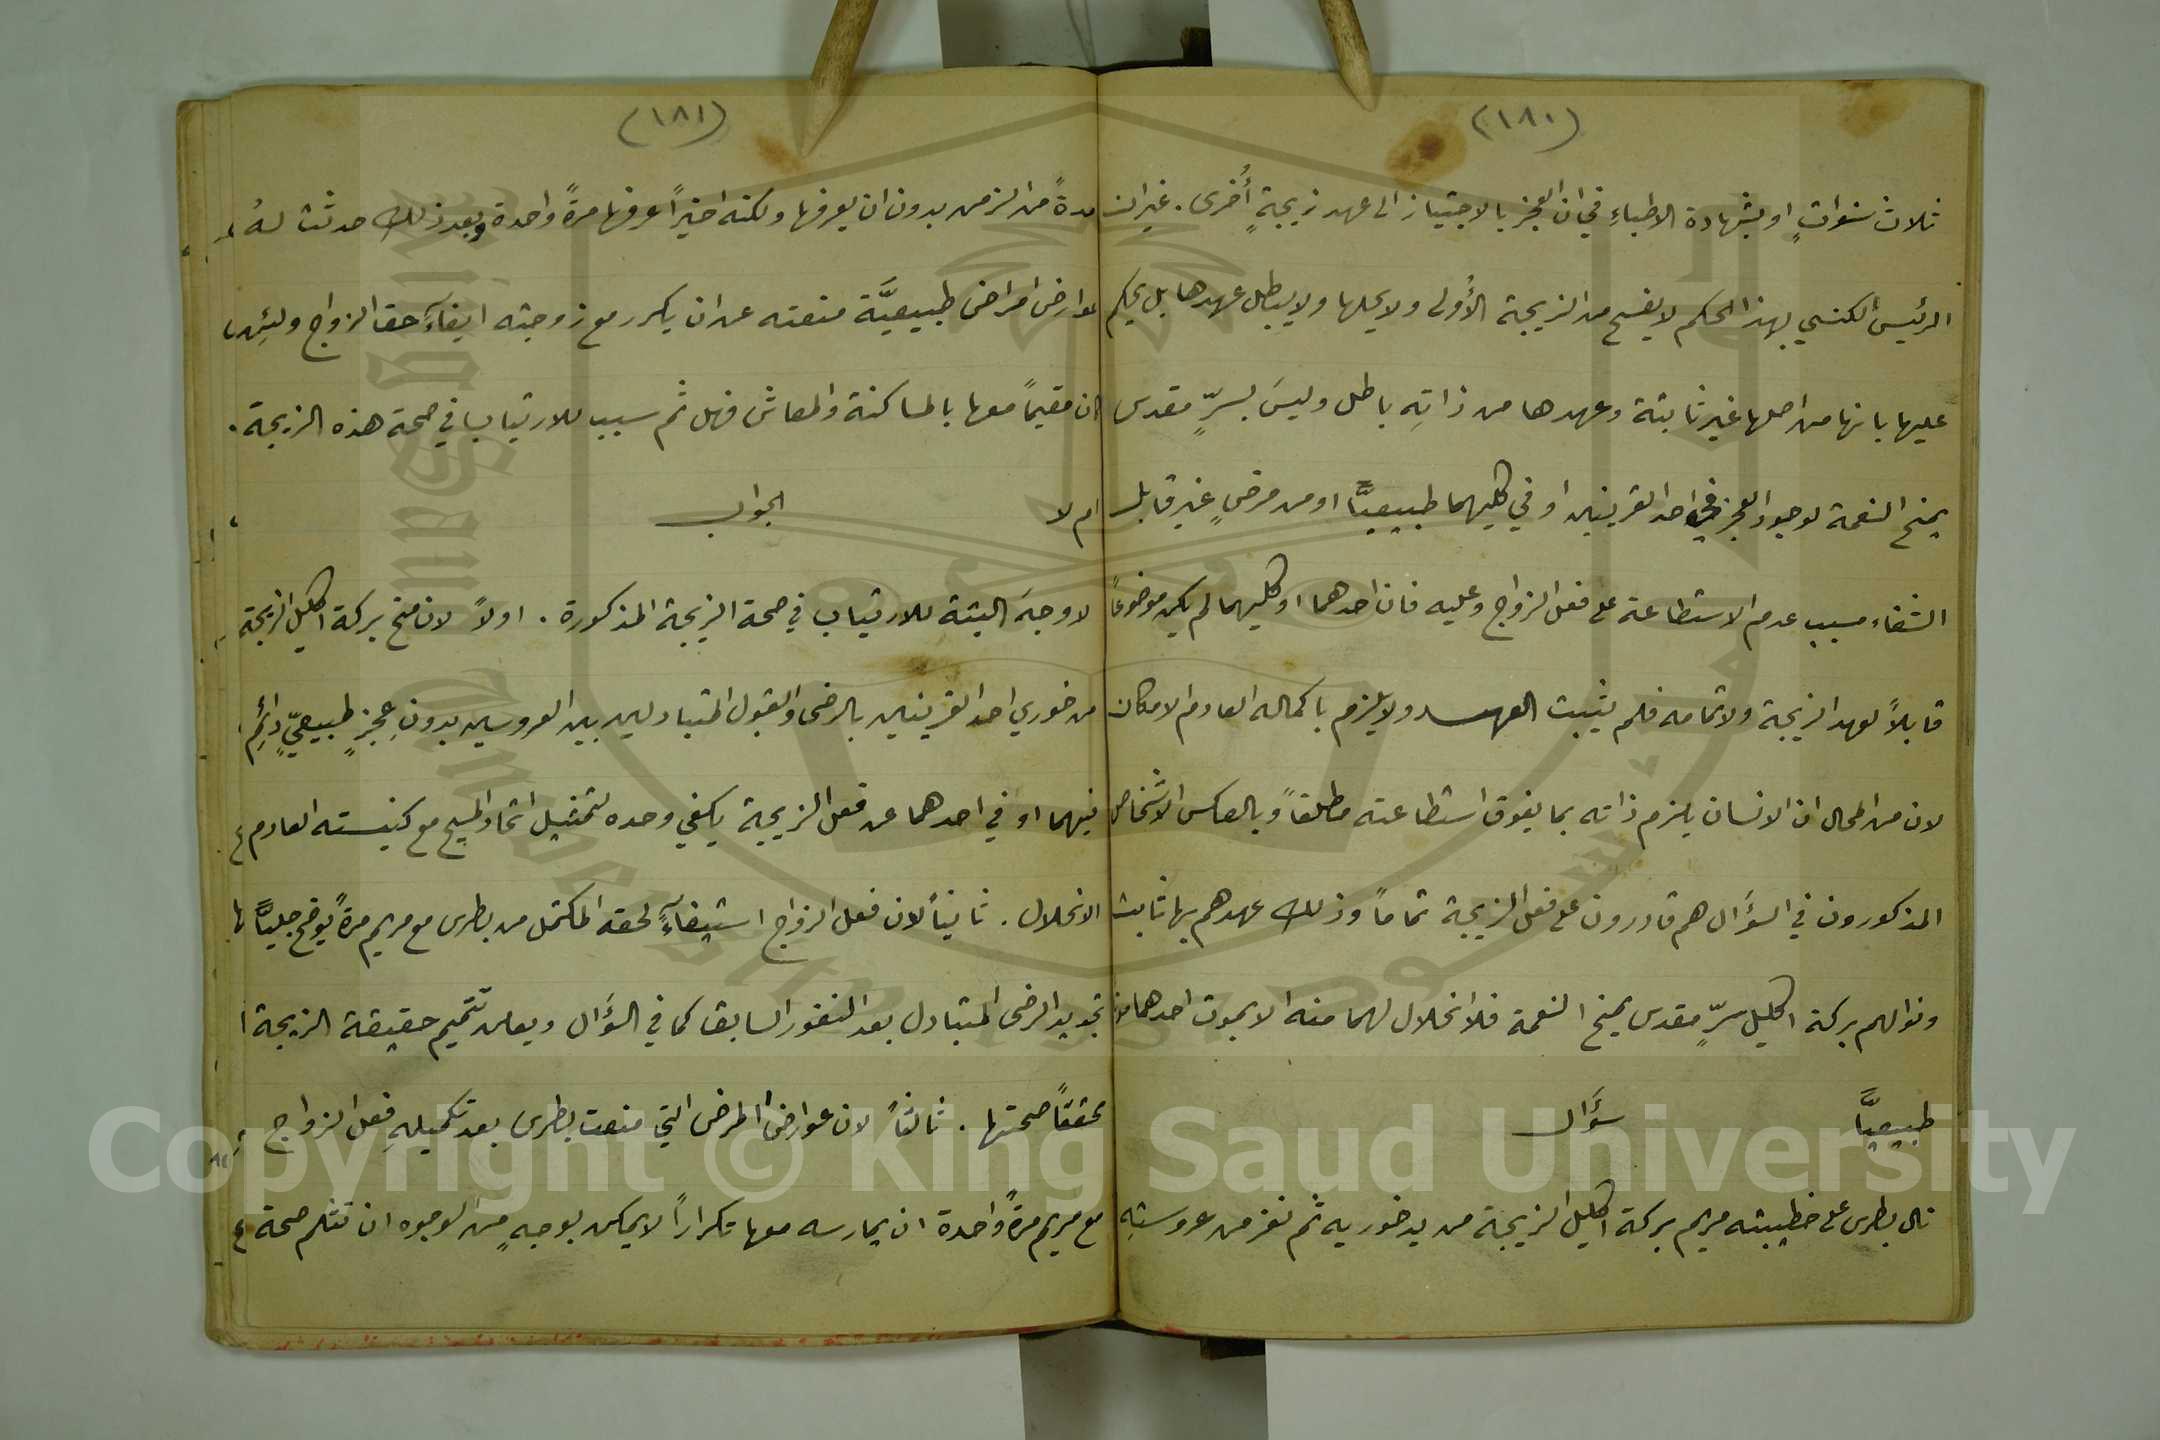 (١٨٠)
ثلاث سنوات او بشهادة الاطباء في ان العجز بالاجتياز الى عهد زيجةٍ أُخرى. غير ان
الرئيس الكنسي بهذا الحكم لا يفسح من الزيجة الأولى ولا يحلها ولا يبطل عهدها بل يحكم
عليها بانها من اصلها غير ثابتة وعهدها من ذاتِهِ باطل وليسَ بسرٍّ مقدس
يمنح النعمة لوجود العجز في احد القرينين او في كليهما طبيعيًّا او من مرضٍ غير قابل
الشفاء مسبب عدم الاستطاعة على فعل الزواج وعليه فان احدهما او كليهما لم يكن موضوعًا
قابلاً لعهد الزيجة ولاتمامه فلم يثبت العهد ولا يلزم باكماله العادم الامكان
لان من المحال ان الانسان يلزم ذاته بما يفوق استطاعته مطلقاً وبالعكس الاشخاص
المذكورون في السؤال هم قادرون على فعل الزيجة تماماً وذلك عهدهم بها ثابت
ونوالهم بركة اكليل سرٍّ مقدس يمنح النعمة فلا انحلال لهما منه الا بموت احدهما
طبيعيًّا سؤَال
نال بطرس على خطيبته مريم بركة اكليل الزيجة من يد خوريه ثم نفر من عروستِهِ
(١٨١)
مدةً من الزمن بدون ان يعرفها ولكنه اخيراً عرفها مرةً واحدة وبعد ذلك حدثت لهُ
عوارض امراض طبيعيَّة منعته عن ان يكرر مع زوجته ايفآءَ حق الزواج ولئِن
كان مقيماً معها بالمساكنة والمعاش فهل ثم سبب للارتياب في صحة هذه الزيجة.
ام لا الجواب
لا وجهَ البتة للارتياب في صحة الزيجة المذكورة. اولاً لان منح بركة اكليل الزيجة
من خوري احد القرينين بالرضى والقبول المتبادلين بين العروسين بدونِ عجزٍ طبيعيٍّ دائِمٍ
فيهما او في احدهما عن فعل الزيجة يكفي وحده لتمثيل اتحاد المسيح مع كنيسته العادم
الانحلال. ثانيأً لان فعل الزواج استيفآءً لحقه المكتمل من بطرس مع مريم مرةً يوضح جليًّا
تجديد الرضى المتبادل بعد النفور السابق كما في السؤَال ويعلن تتميم حقيقة الزيجة
محققاً صحتها. ثالثاً لان عوارض المرض التي منعت بطرس بعد تكميلهِ فعل الزواج
مع مريم مرةً واحدة ان يمارسه معها تكراراً لا يمكن بوجهٍ من الوجوه ان تثلم صحة
Copyright © King Saud University